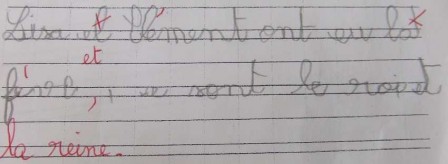 Lisa et Clément ont eu la
et
fève, ce sont le roi et
la reine.